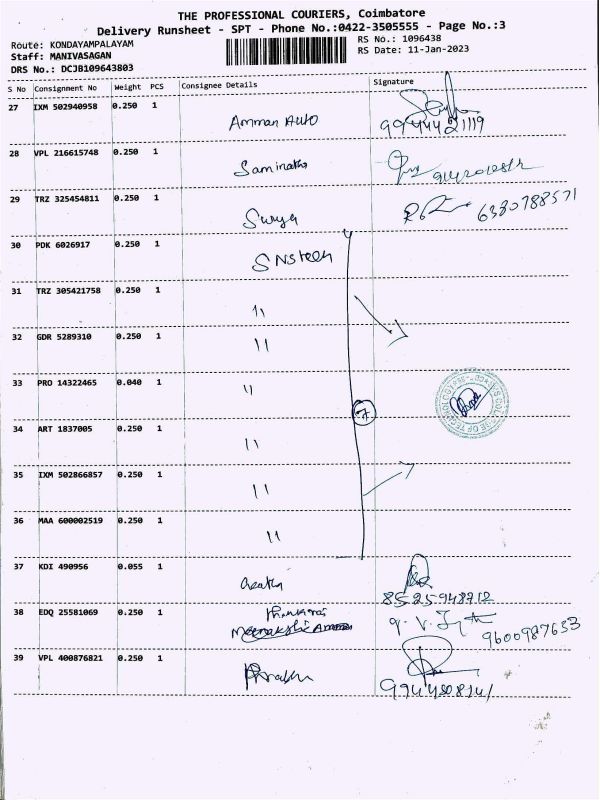 THE PROFESSIONAL COURIERS, Coimbatore
Delivery Runsheet - SPT - Phone No.:0422-3505555 - Page No.:3
Route: KONDAYAMPALAYAM RS No.: 1096438
Staff: MANIVASAGAN RS Date: 11-Jan-2023
DRS No.: DCJB109643803
S No Consignment No Weight PCS Consignee Details Signature
27 IXM 502940958 0.250 1 Amman Auto
9944421119
28 VPL 216615748 0.250 1 Saminatha
29 TRZ 325454811 0.250 1 Surya 6380788571
30 PDK 6026917 0.250 1 SNS tech
31 TRZ 305421758 0.250 1 11
32 GDR 5289310 0.250 1 11
33 PRO 14322465 0.040 1 11
7
34 ART 1837005 0.250 1 11
35 IXM 502866857 0.250 1 11
36 MAA 600002519 0.250 1 11
37 KDI 490956 0.055 1
8525948712
38 EDQ 25581069 0.250 1
Meenakshi Amman 9600987633
39 VPL 400876821 0.250 1 Prabhu